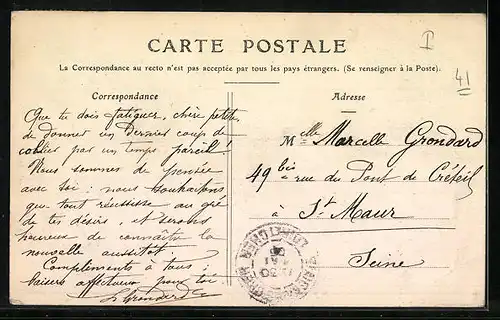 CARTE POSTALE
La Correspondance au recto n'est pas acceptée par tous les pays étrangers. (Se renseigner à la Poste).
Correspondance
Que tu dois fatiguer, chère petite,
de donner un dernier coup de
collier par un temps pareil!
Nous sommes de pensée
avec toi: nous souhaitons
que tout réussisse au gré
de tes désirs, et serons
heureux de connaître la
nouvelle aussitôt.
Compliments à tous,
baisers affectueux pour toi
Grondard
Adresse
Melle Marcelle Grondard
49 bis rue du Pont de Créteil
à St Maur
Seine
41